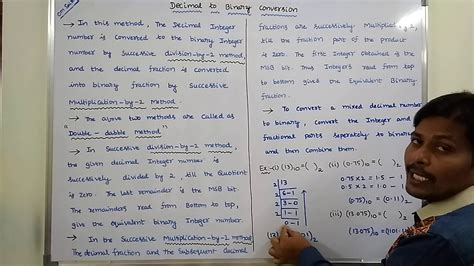 Decimal to Binary Conversion
→ In this method, The Decimal Integer
number is Converted to the binary Integer
number by Successive division-by-2 method,
and the decimal fraction is converted
into binary fraction by Successive
Multiplication-by-2 Method.
→ The above two methods are called as
"Double-dabble Method"
→ In Successive division-by-2 method,
the given decimal Integer number is
successively divided by 2, till the Quotient
is zero. The last remainder is the MSB bit.
The remainders read from Bottom to top,
give the equivalent binary Integer number.
→ In the Successive Multiplication-by-2 method
The decimal fraction and the subsequent decimal
fractions are successively Multiplied
till the fraction part of the product
is Zero. The first Integer obtained is the
MSB bit. Thus Integers read from top
to bottom gives the Equivalent Binary
fraction.
→ To Convert a mixed decimal number
to binary, convert the Integer and
fractional parts seperately to binary
and then combine them.
Ex:-(i) (13)₁₀=( )₂
2 13
2 6-1
2 3-0
2 1-1
0-1
(ii) (0.75)₁₀=( )₂
0.75×2=1.5-1
0.5×2=1.0-1
(0.75)₁₀=(0.11)₂
(iii) (13.075)₁₀=(
(13.075)₁₀=(1101.